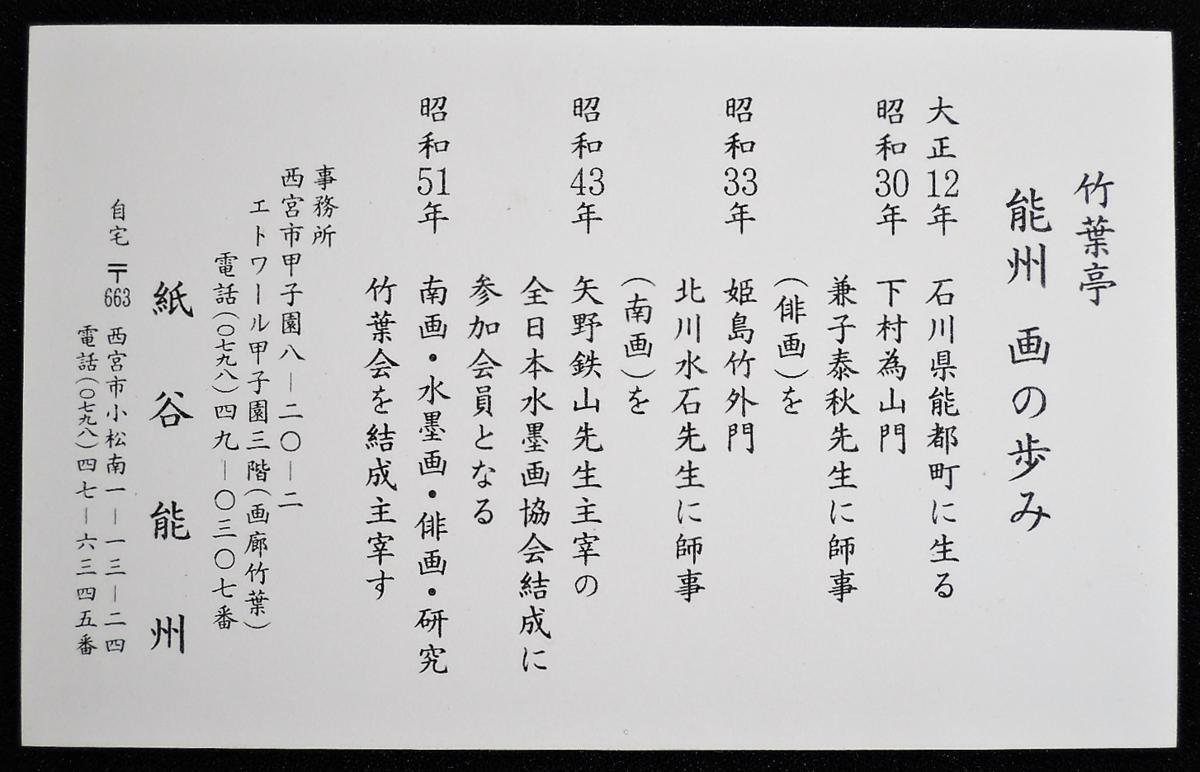 竹葉亭
能州　画の歩み
大正12年　石川県能都町に生る
昭和30年　下村為山門
兼子泰秋先生に師事
(俳画)を
昭和33年　姫島竹外門
北川水石先生に師事
(南画)を
昭和43年　矢野鉄山先生主宰の
全日本水墨画協会結成に
参加会員となる
昭和51年　南画・水墨画・俳画・研究
竹葉会を結成主宰す
事務所
西宮市甲子園八－二〇－二
エトワール甲子園三階(画廊竹葉)
電話(〇七九八)四九－〇三〇七番
紙谷能州
自宅　〒663　西宮市小松南一－一三－二四
電話(〇七九八)四七－六三四五番